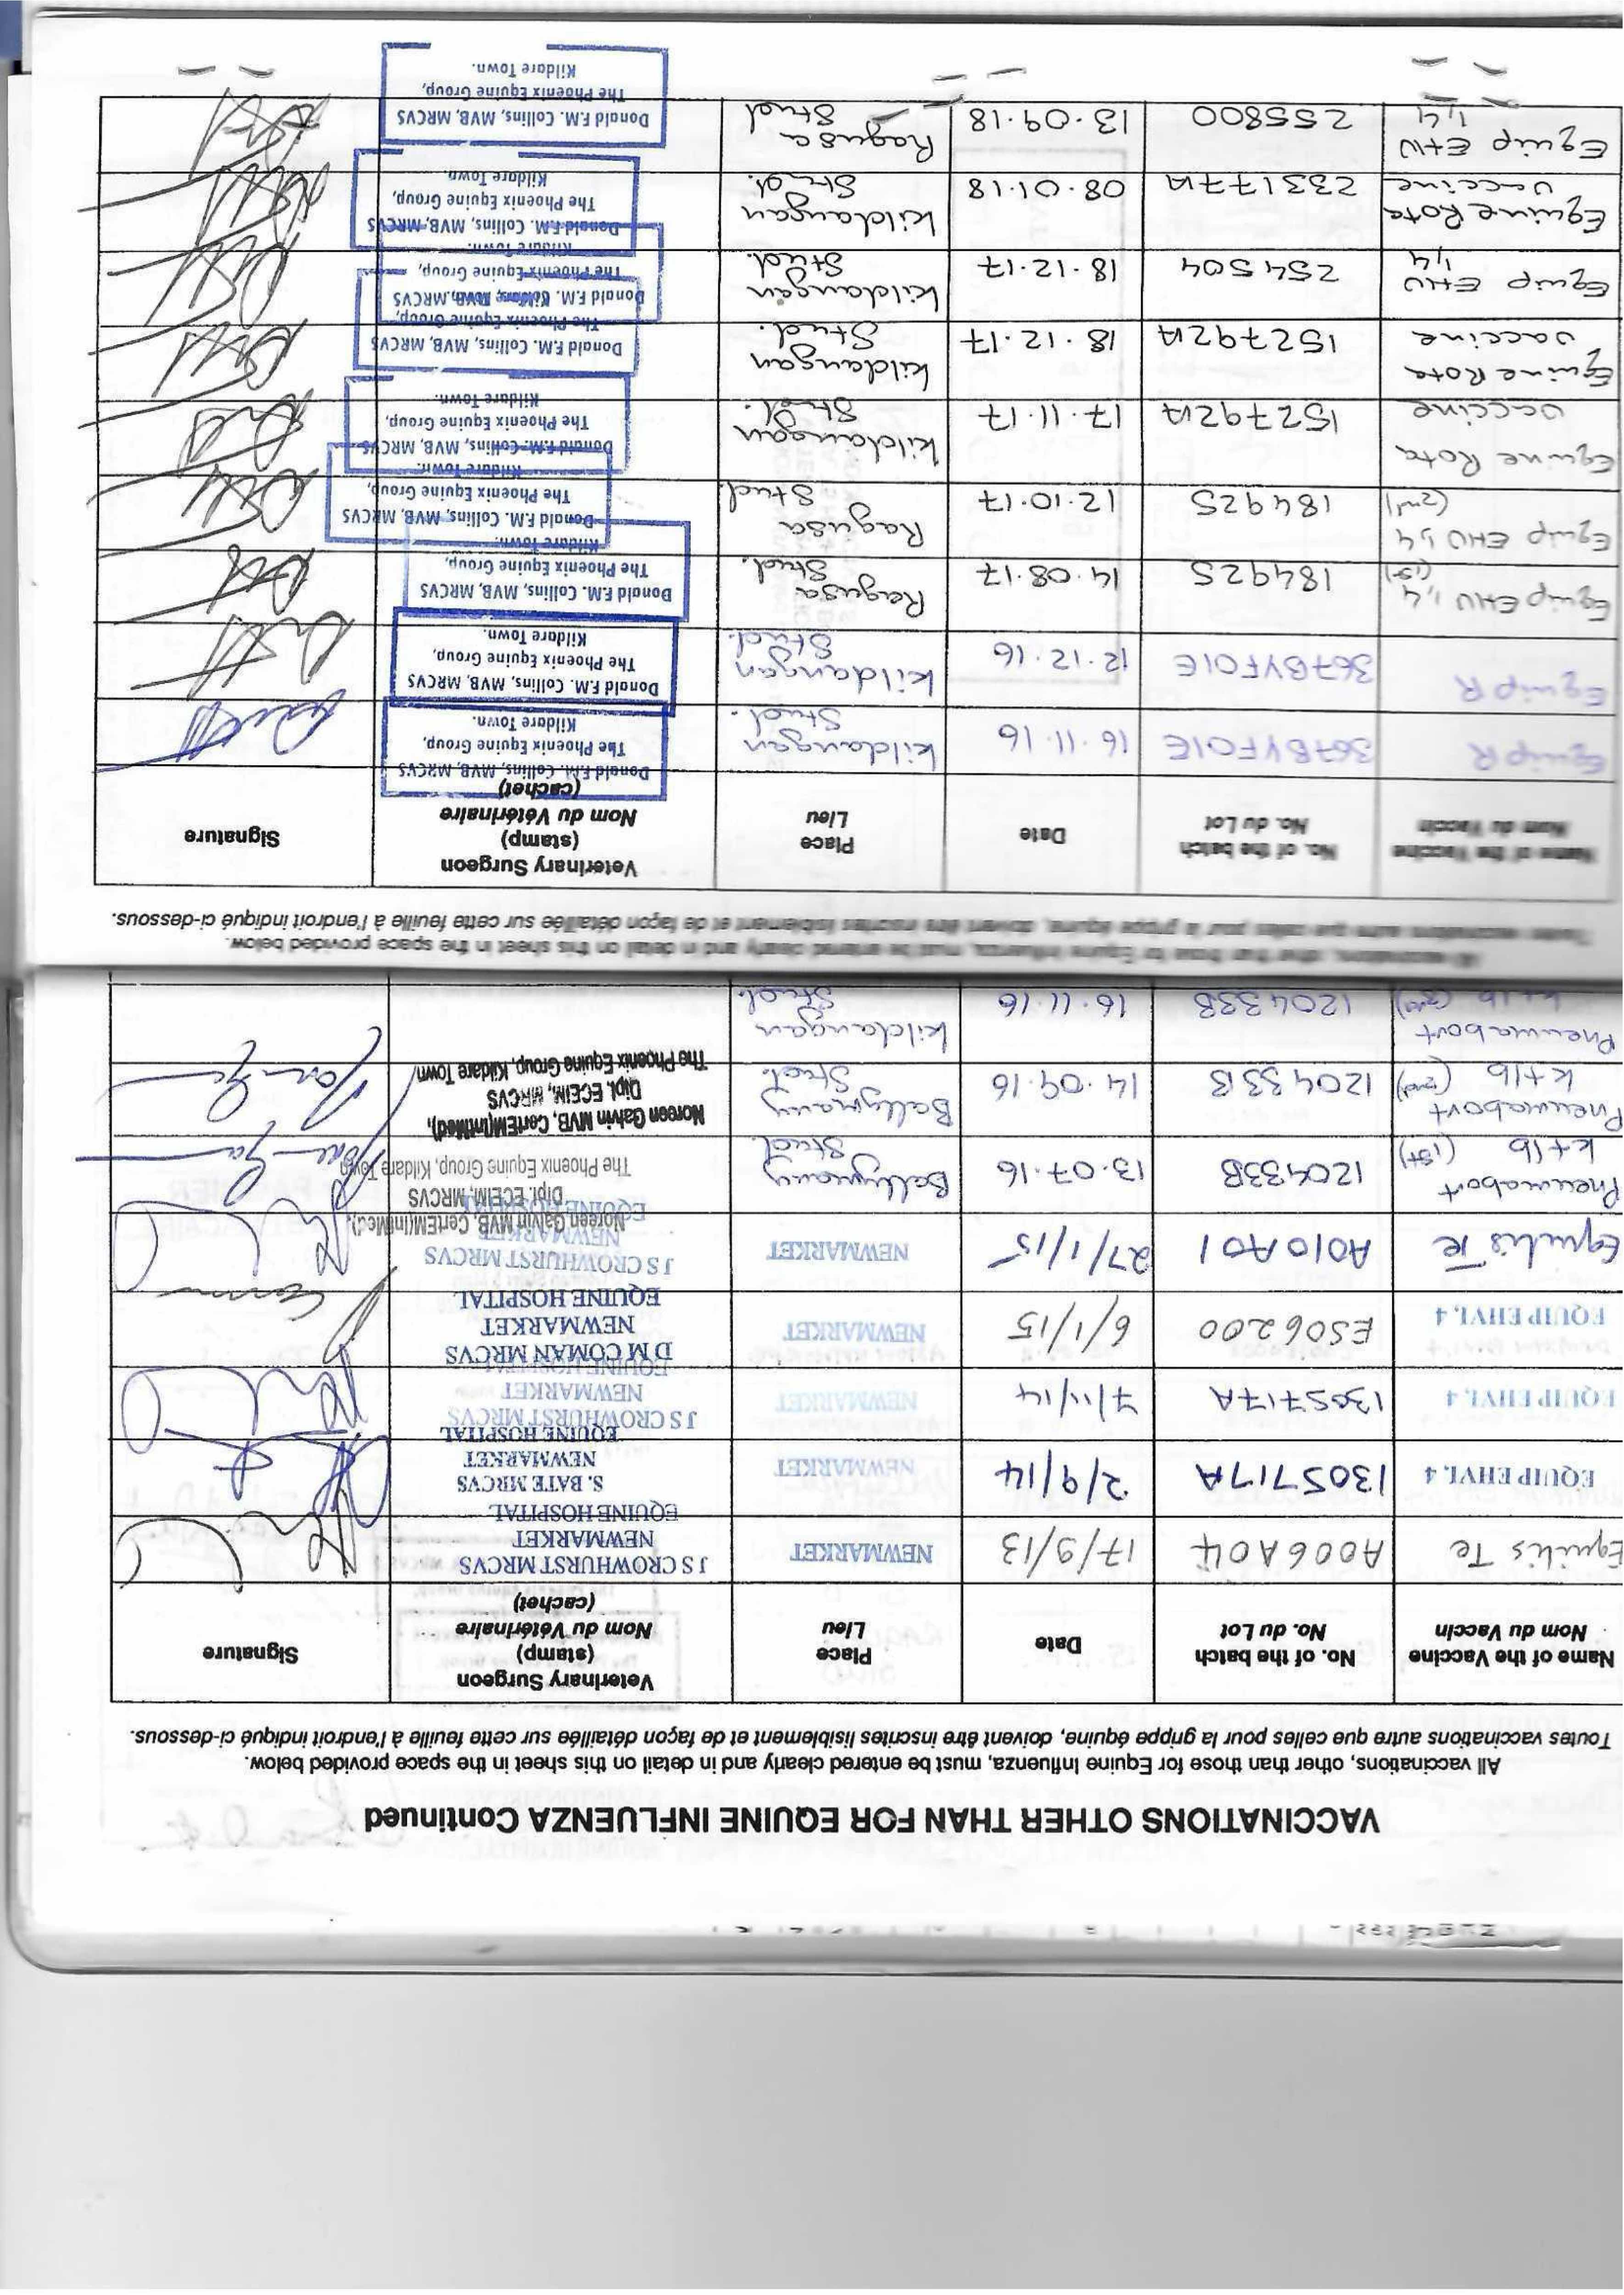 VACCINATIONS OTHER THAN FOR EQUINE INFLUENZA Continued
All vaccinations, other than those for Equine Influenza, must be entered clearly and in detail on this sheet in the space provided below.
Toutes vaccinations autre que celles pour la grippe équine, doivent être inscrites lisiblement et de façon détaillée sur cette feuille à l'endroit indiqué ci-dessous.
Name of the Vaccine
Nom du Vaccin
No. of the batch
No. du Lot
Date
Place
Lieu
Veterinary Surgeon
(stamp)
Nom du Vétérinaire
(cachet)
Signature
Equilis Te
A006A04
17/9/13
NEWMARKET
J S CROWHURST MRCVS
NEWMARKET
EQUINE HOSPITAL
EQUIP EHV1.4
1305717A
2/9/14
NEWMARKET
S. BATE MRCVS
NEWMARKET
EQUINE HOSPITAL
EQUIP EHV1.4
1305717A
7/11/14
NEWMARKET
J S CROWHURST MRCVS
NEWMARKET
EQUINE HOSPITAL
EQUIP EHV1.4
ES06200
6/1/15
NEWMARKET
D M COMAN MRCVS
NEWMARKET
EQUINE HOSPITAL
Equilis Te
A010A01
27/1/15
NEWMARKET
J S CROWHURST MRCVS
NEWMARKET
EQUINE HOSPITAL
Pneumabort
K+1b (1st)
120433B
13.07.16
Ballymany
Stud
Noreen Galvin MVB, CertEM(IntMed),
Dipl. ECEIM, MRCVS
The Phoenix Equine Group, Kildare Town
Pneumabort
K+1b (2nd)
120433B
14.09.16
Ballymany
Stud.
Noreen Galvin MVB, CertEM(IntMed),
Dipl. ECEIM, MRCVS
The Phoenix Equine Group, Kildare Town
Pneumabort
K+1b (3rd)
120433B
16.11.16
Kildangan
Stud.
All vaccinations, other than those for Equine Influenza, must be entered clearly and in detail on this sheet in the space provided below.
Toutes vaccinations autre que celles pour la grippe équine, doivent être inscrites lisiblement et de façon détaillée sur cette feuille à l'endroit indiqué ci-dessous.
Name of the Vaccine
Nom du Vaccin
No. of the batch
No. du Lot
Date
Place
Lieu
Veterinary Surgeon
(stamp)
Nom du Vétérinaire
(cachet)
Signature
Equip R
367BYF01E
16.11.16
Kildangan
Stud.
Donald F.M. Collins, MVB, MRCVS
The Phoenix Equine Group,
Kildare Town.
Equip R
367BYF01E
12.12.16
Kildangan
Stud.
Donald F.M. Collins, MVB, MRCVS
The Phoenix Equine Group,
Kildare Town.
Equip EHV 1,4
(1st)
184925
14.08.17
Ragusa
Stud.
Donald F.M. Collins, MVB, MRCVS
The Phoenix Equine Group,
Kildare Town.
Equip EHV 1,4
(2nd)
184925
12.10.17
Ragusa
Stud.
Donald F.M. Collins, MVB, MRCVS
The Phoenix Equine Group,
Kildare Town.
Equine Rota
Vaccine
152792A
17.11.17
Kildangan
Stud.
Donald F.M. Collins, MVB, MRCVS
The Phoenix Equine Group,
Kildare Town.
Equine Rota
Vaccine
152792A
18.12.17
Kildangan
Stud.
Donald F.M. Collins, MVB, MRCVS
The Phoenix Equine Group,
Kildare Town.
Equip EHV
1,4
254504
18.12.17
Kildangan
Stud.
Donald F.M. Collins, MVB, MRCVS
The Phoenix Equine Group,
Kildare Town.
Equine Rota
Vaccine
233177A
08.01.18
Kildangan
Stud.
Donald F.M. Collins, MVB, MRCVS
The Phoenix Equine Group,
Kildare Town.
Equip EHV
1,4
255800
13.09.18
Ragusa
Stud
Donald F.M. Collins, MVB, MRCVS
The Phoenix Equine Group,
Kildare Town.